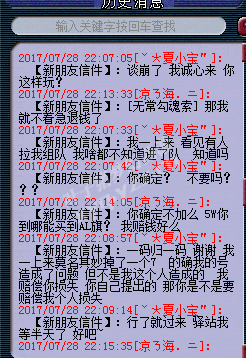 历史消息
输入关键字按回车查找
2017/07/28 22:07:05[ˇ大夏小宝"]:
【新朋友信件】：谈崩了 我诚心来 你
这样玩？
2017/07/28 22:13:33[京ㄋ海. 二]:
【新朋友信件】：[无常勾魂索]那我
就不看急退钱了
2017/07/28 22:07:32[ˇ大夏小宝"]:
【新朋友信件】：我一上来 看见有人
拉我组队 我啥都不知道进了队 知道吗
【新朋友信件】：你确定？ 不要吗？
？？
2017/07/28 22:14:05[京ㄋ海. 二]:
【新朋友信件】：你确定不加么 5W你
到哪能买到AI旗？ 我赔钱好么
2017/07/28 22:08:57[ˇ大夏小宝"]:
【新朋友信件】：一码归一码 谢谢 我
造成了问题 但不是我这个人造成的 我
赔偿你损失 你自己提出的 那你是不是要
赔偿我个人损失
2017/07/28 22:09:14[ˇ大夏小宝"]:
【新朋友信件】：行了就过来 驿站我
等半天了 好吧
2017/07/28 22:15:35[京ㄋ海. 二]: